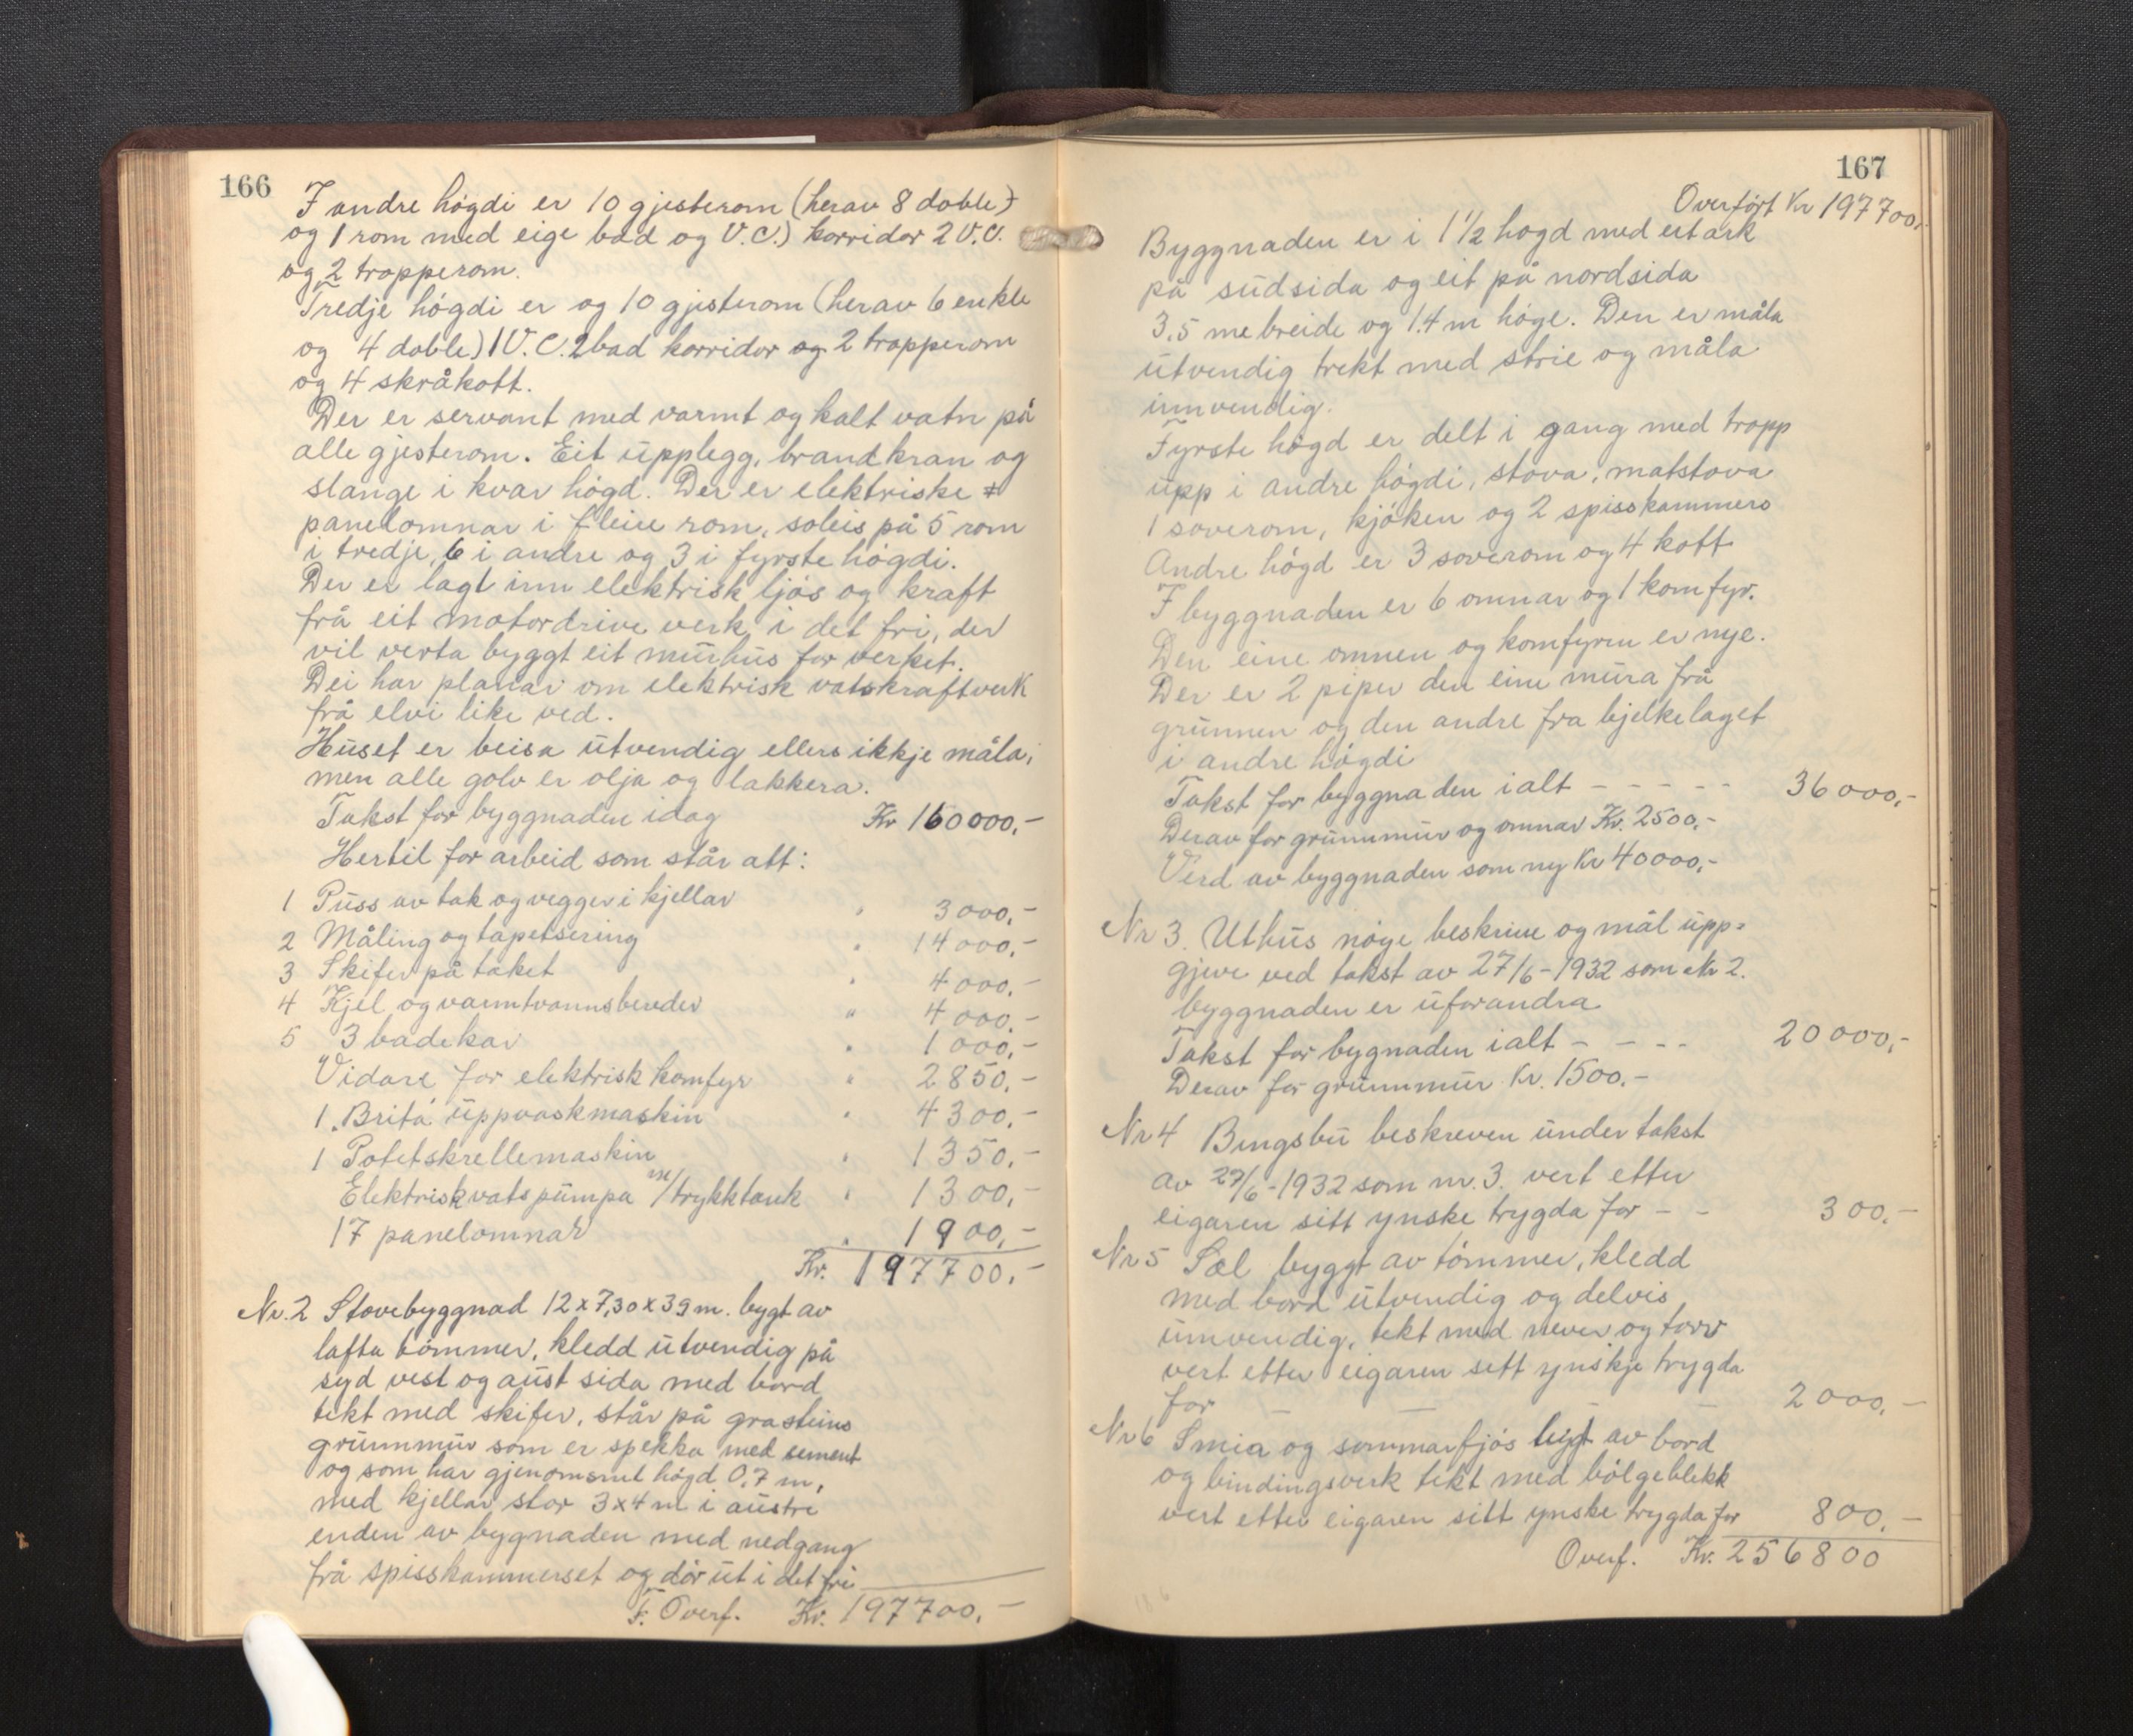 166
I andre högdi er 10 gjesterom (herav 8 doble)
og 1 rom med eige bad og V.C.) korridor 2 V.C.
og 2 tropperom.
Tredje högdi er og 10 gjesterom (herav 6 enkle
og 4 doble) 1 V.C. 2 bad korridor og 2 tropperom
og 4 skråkott.
Der er servant med varmt og kalt vatn på
alle gjesterom. Eit upplegg, brandkran og
slange i kvar högd. Der er elektriske
panelomnar i fleire rom, soleis på 5 rom
i tredje, 6 i andre og 3 i fyrste högdi.
Der er lagt inn elektrisk ljós og kraft
frå eit motordrive verk i det fri, der
vil verta byggt eit murhus for verket.
Dei har planar om elektrisk vatskraftverk
frå elvi like ved.
Huset er beisa utvendig ellers ikkje måla,
men alle golv er olja og lakkera.
Takst for byggnaden idag Kr 160000,-
Hertil for arbeid som står att:
1 Puss av tak og vegger i kjellar " 3000,-
2 Måling og tapetsering " 14000,-
3 Skifer på taket " 4000,-
4 Kjel og varmtvannsbereder " 4000,-
5 3 badekar " 1000,-
Vidare for elektrisk komfyr " 2850,-
1 "Brita" uppvaskmaskin " 4300,-
1 Potetskrellemaskin " 1350,-
Elektrisk vatspumpa m/trykktank " 1300,-
17 panelomnar " 1900,-
Kr. 197700,-
Nr. 2 Stovebyggnad 12 x 7,30 x 39 m. bygt av
lafta tömmer, kledd utvendig på
syd vest og aust sida med bord
tekt med skifer, står på grasteins
grunnmur som er spekka med sement
og som har gjenomsnit högd 0.7 m,
med kjellar stor 3x4 m i austre
enden av bygnaden med nedgang
frå spisskammerset og dör ut i det fri
T. Overf. Kr. 197700,-
167
Overfört Kr 197700,-
Byggnaden er i 1 1/2 hogd med eit ark
på sudsida og eit på nordsida
3,5 m breide og 1.4 m höge. Den er måla
utvendig trekt med strie og måla
innvendig.
Fyrste högd er delt i gang med tropp
upp i andre högdi, stova, matstova
1 soverom, kjöken og 2 spisskammers
Andre högd er 3 soverom og 4 kott
I byggnaden er 6 omnar og 1 komfyr.
Den eine omnen og komfyren er nye.
Der er 2 piper den eine mura frå
grunnen og den andre fra bjelkelaget
i andre högdi
Takst for byggnaden ialt - - - - - 36000,-
Derav for grunnmur og omnar Kr. 2500,-
Verd av byggnaden som ny Kr 40000,-
Nr 3. Uthus nöye beskrive og mål upp-
gjeve ved takst av 27/6-1932 som Nr 2.
byggnaden er uforandra
Takst for bygnaden ialt - - - - 20000,-
Derav for grunnmur Kr. 1500,-
Nr 4 Bingsbu beskreven under takst
av 27/6-1932 som nr. 3. vert etter
eigaren sitt ynske trygda for - - 300,-
Nr 5 Sæl byggt av tömmer, kledd
med bord utvendig og delvis
innvendig, tekt med never og torv
vert etter eigaren sett ynskje trygda
for - - - 2000,-
Nr 6 Smia og sommarfjös bygt av bord
og bindingsverk tekt med bölgeblekk
vert etter eigaren sitt ynske trygda for 800,-
Overf. Kr. 256800